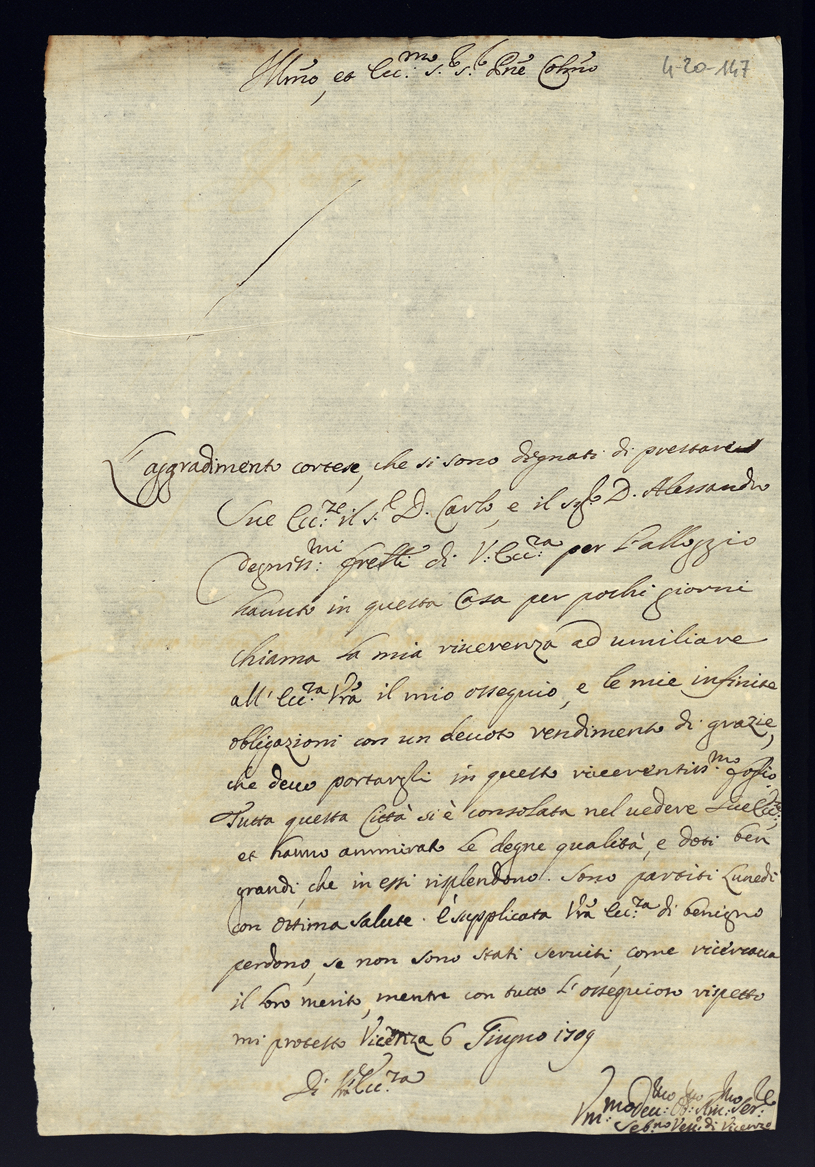 Illmo, et Ecc.mo S.r S.r Pne Colmo
4-20-147
L'aggradimento cortese, che si sono degnati di prestare
Sue Ecc.ze il S.r D. Carlo, e il Sig.r D. Alessandro
degniss.mi frelli di V. Ecc.za per l'alloggio
hauuto in questa Casa per pochi giorni
chiama la mia riuerenza ad umiliare
all' Ecc.za Vra il mio ossequio, e le mie infinite
obligazioni con un deuoto rendimento di grazie,
che deuo portargli in questo riuerentiss.mo foglio.
Tutta questa Città si è consolata nel uedere Sue Ecc.ze,
et hanno ammirato le degne qualità, e doti ben
grandi, che in essi risplendono. Sono partiti Lunedi
con ottima salute. È supplicata Vra Ecc.za di benigno
perdono, se non sono stati seruiti, come ricercaua
il loro merito, mentre con tutto l'ossequioso rispetto
mi protesto Vicenza 6 Giugno 1709
Di Vra Ecc.za
Vm.mo Deu.mo Ser.re
Seb.no Ves.o di Vicenza